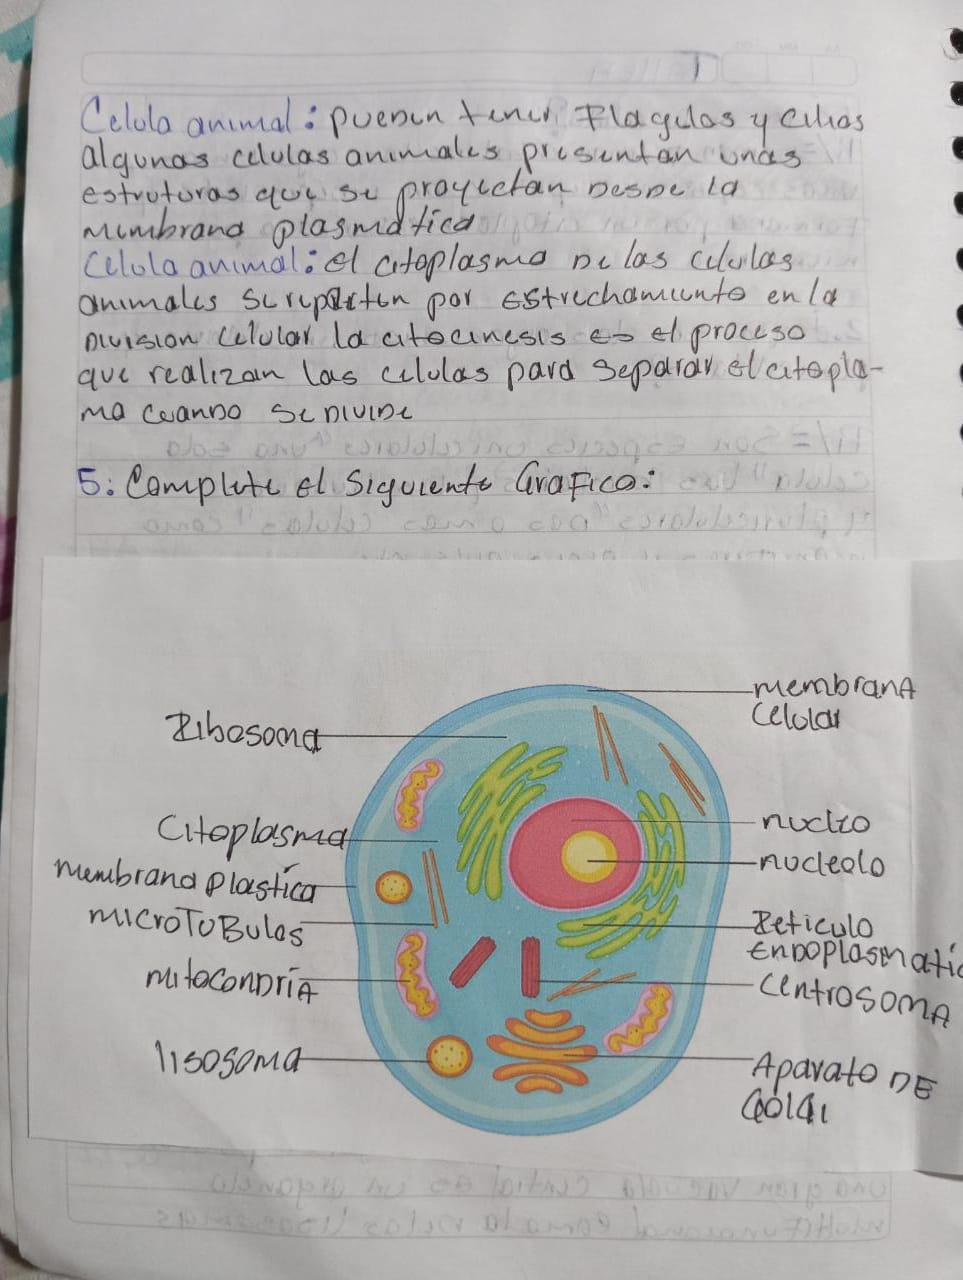 Celula animal: pueden tener Flagelos y cilios
algunas celulas animales presentan unas
estruturas que se proyectan Desde la
membrana plasmatica
Celula animal: el citoplasma De las celulas
animales se reparten por estrechamiento en la
Division Celular la citocinesis es el proceso
que realizan las celulas para separar el citopla-
ma cuando se DiviDe
5: Complete el Siguiente GraFico:
membranA
Celular
Ribosoma
nucleo
Citoplasma
nucleolo
membrana Plastica
microTuBulos
Reticulo
EnDoplasmatic
mitoconDríA
CentrosomA
lisosoma
Aparato DE
Golgi